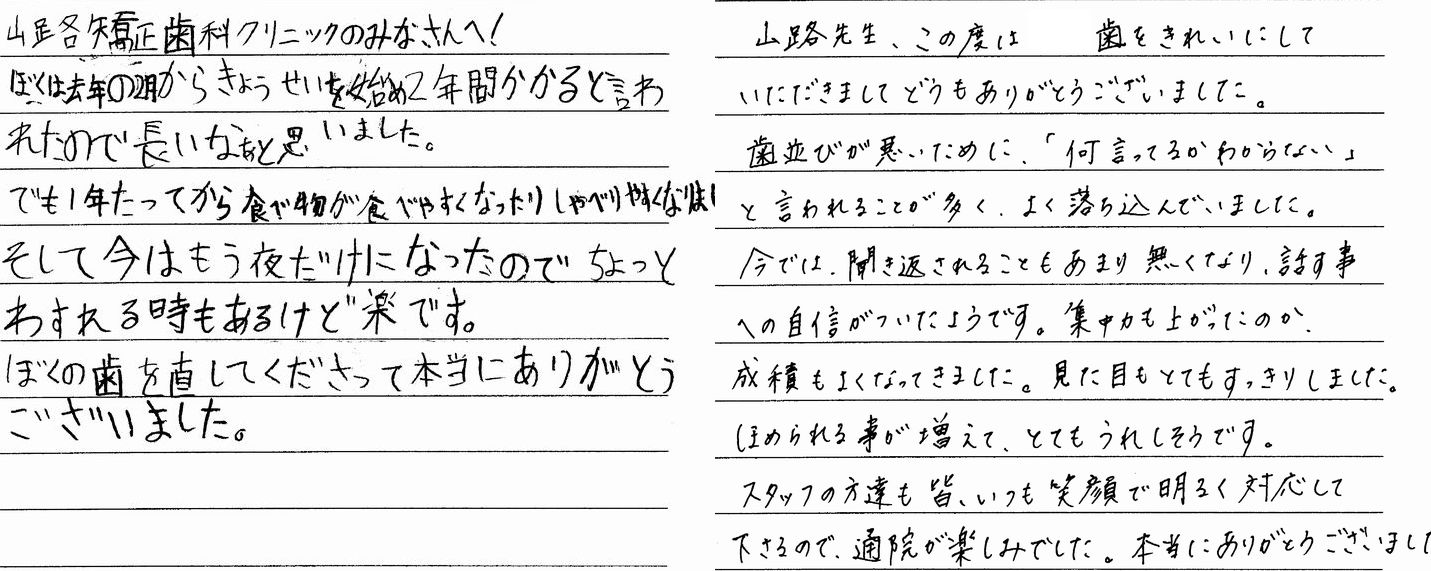 山路矯正歯科クリニックのみなさんへ!
ぼくは去年の2月からきょうせいを始め2年間かかると言わ
れたので長いなぁと思いました。
でも1年たってから食べ物が食べやすくなったりしゃべりやすくなりまし
そして今はもう夜だけになったのでちょっと
わすれる時もあるけど楽です。
ぼくの歯を直してくださって本当にありがとう
ございました。
山路先生、この度は 歯をきれいにして
いただきましてどうもありがとうございました。
歯並びが悪いために、「何言ってるかわからない」
と言われることが多く、よく落ち込んでいました。
今では、聞き返されることもあまり無くなり、話す事
への自信がついたようです。集中力も上がったのか、
成積もよくなってきました。見た目もとてもすっきりしました。
ほめられる事が増えて、とてもうれしそうです。
スタッフの方達も皆、いつも笑顔で明るく対応して
下さるので、通院が楽しみでした。本当にありがとうございまし